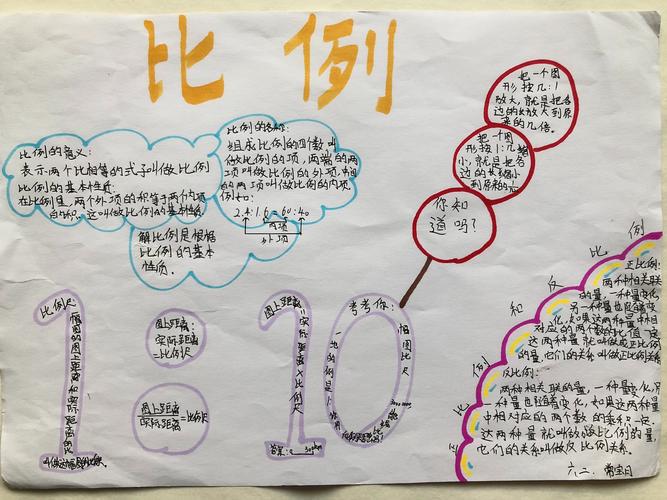 比例
比例的意义:
表示两个比相等的式子叫做比例
比例的基本性质:
在比例里,两个外项的积等于两个内项
的积,这叫做比例的基本性质
比例的名称:
组成比例的四个数叫
做比例的项,两端的两
项叫做比例的外项,中间
的两项叫做比例的内项.
例如:
2.4:1.6=60:40
内项
外项
解比例是根据
比例的基本
性质.
把一个图
形按几:1
放大,就是把各
边的长放大到原
来的几倍.
把一个图
形按1:几缩
小,就是把各
边的长缩小
你知
道吗?
比例尺:
图上距离:
实际距离
=比例尺
图上距离
实际距离
=比例尺
图上距离=实际距离×比例尺
考考你:
正比例和反比例
正比例:
两种相关联
的量,一种量变化,
另一种量也随着变
化,如果这两种量中相
对应的两个数的比值一定
这两种量就叫做成正比例
的量,它们的关系叫做正比例关系
反比例:
两种相关联的量,一种量变化,另
一种量也随着变化,如果这两种量
中相对应的两个数的乘积一定
这两种量就叫做成反比例的量,
它们的关系叫做反比例关系.
六二